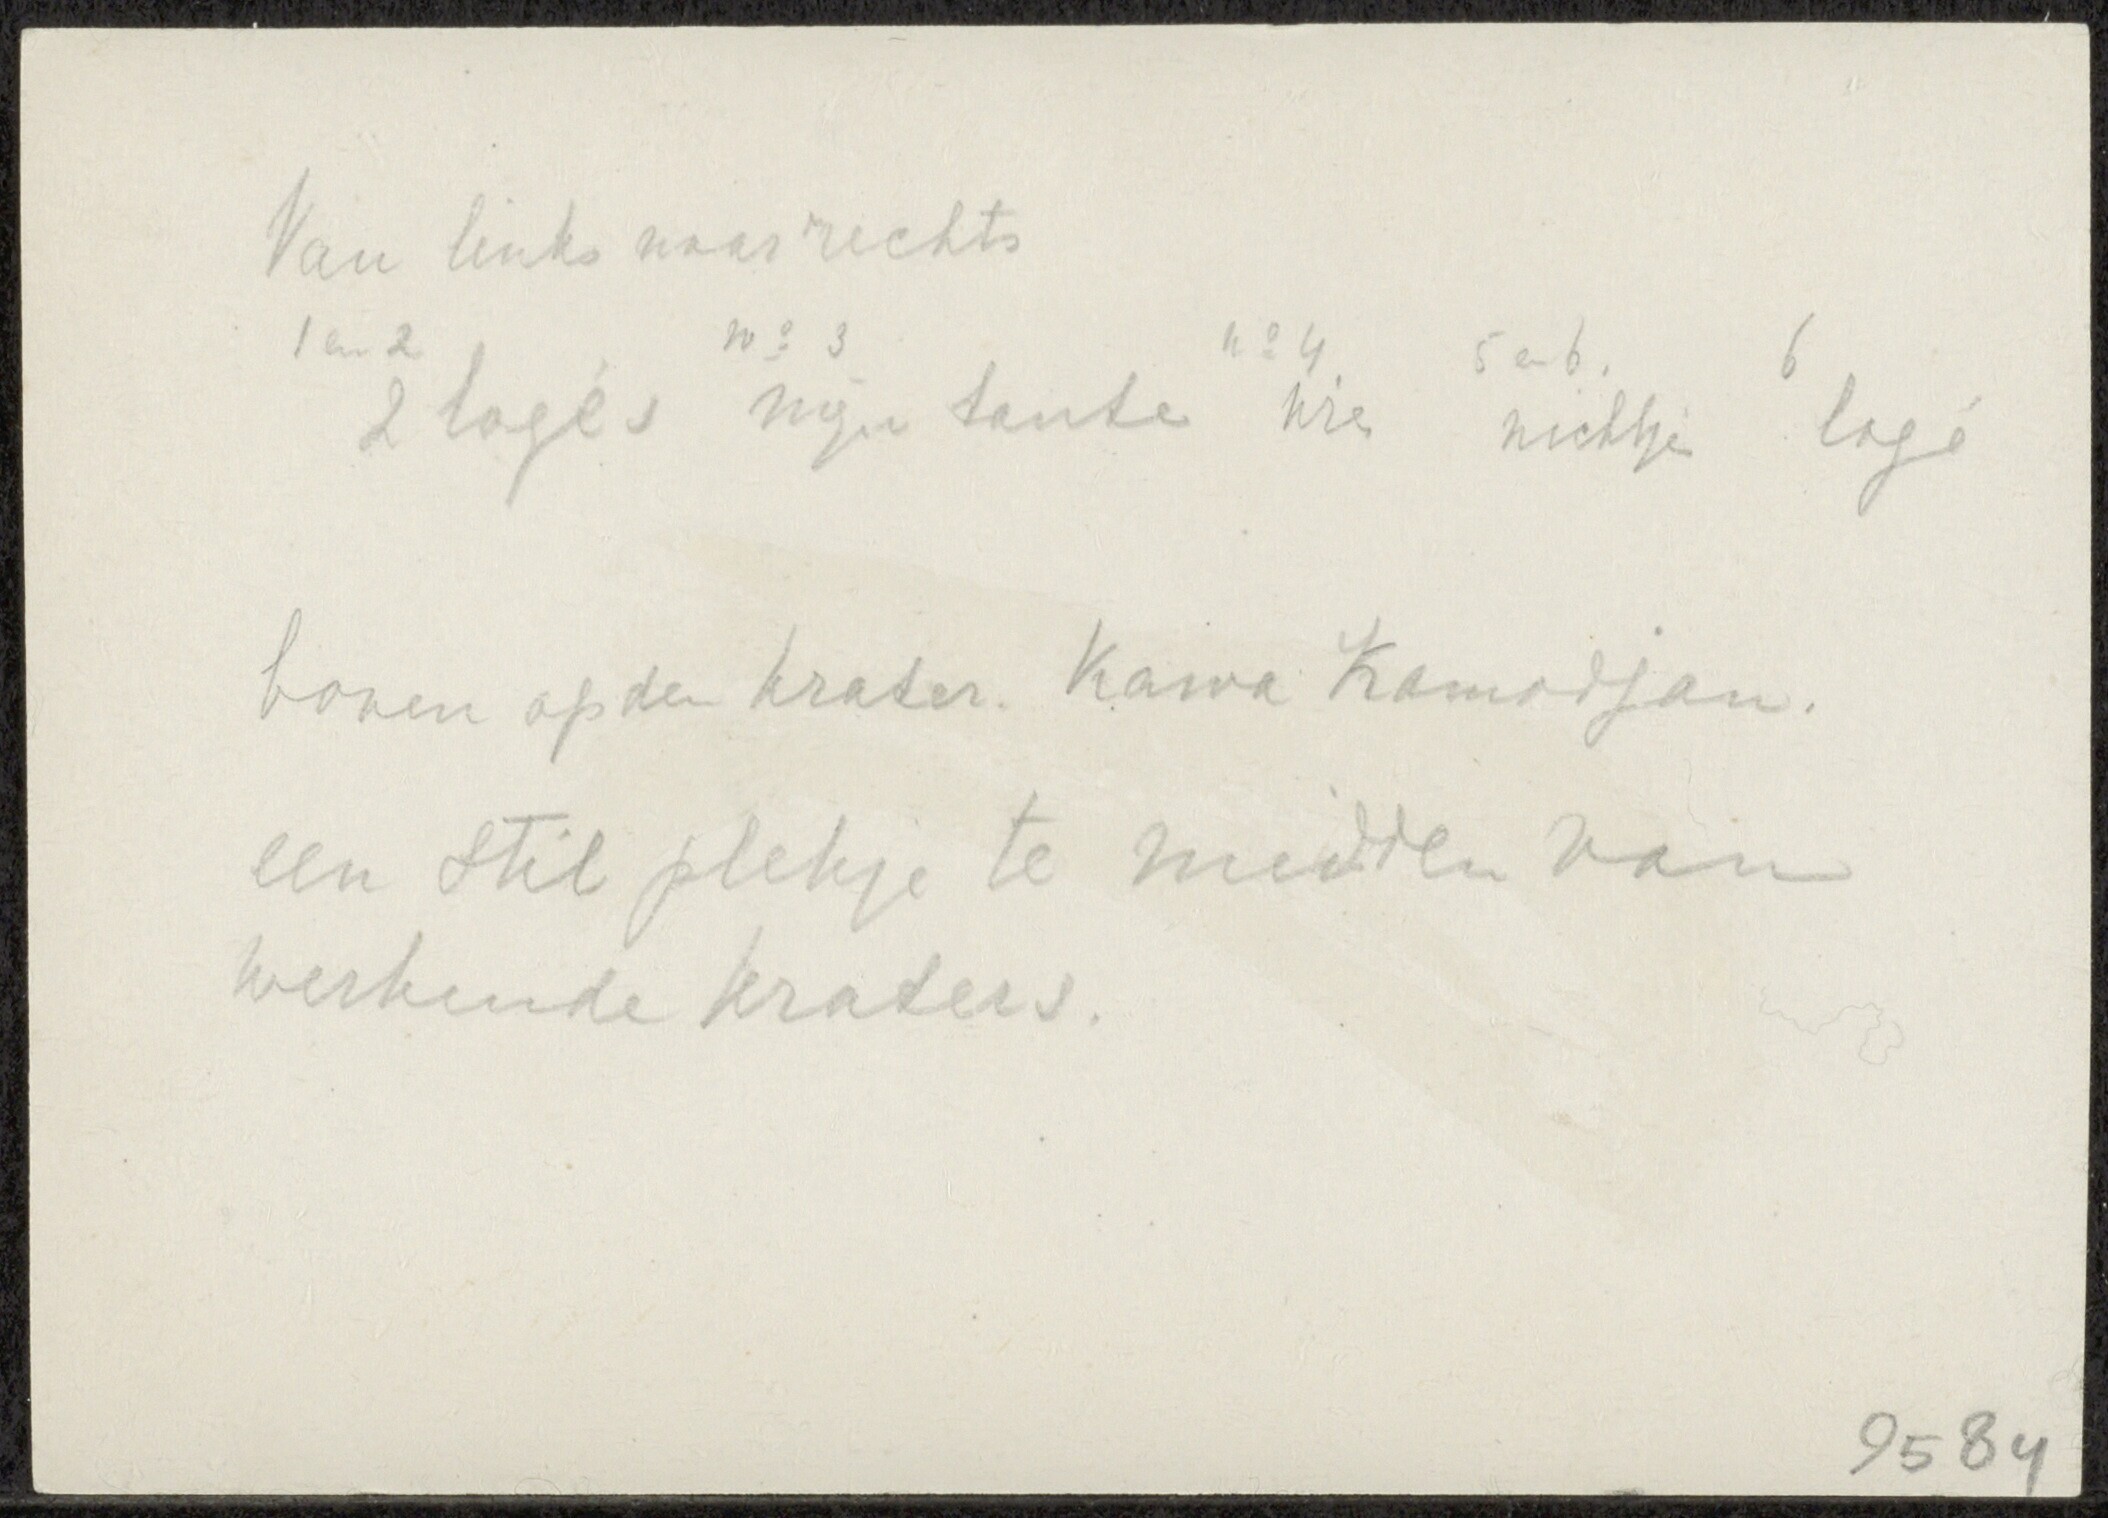 Van links naar rechts
1 en 2 no 3 no 4 5 en 6. 6
2 logés mijn tante nichtje logé
boven op den krater. Kawa Kamodjan.
een stil plekje te midden van
werkende kraters.
9584